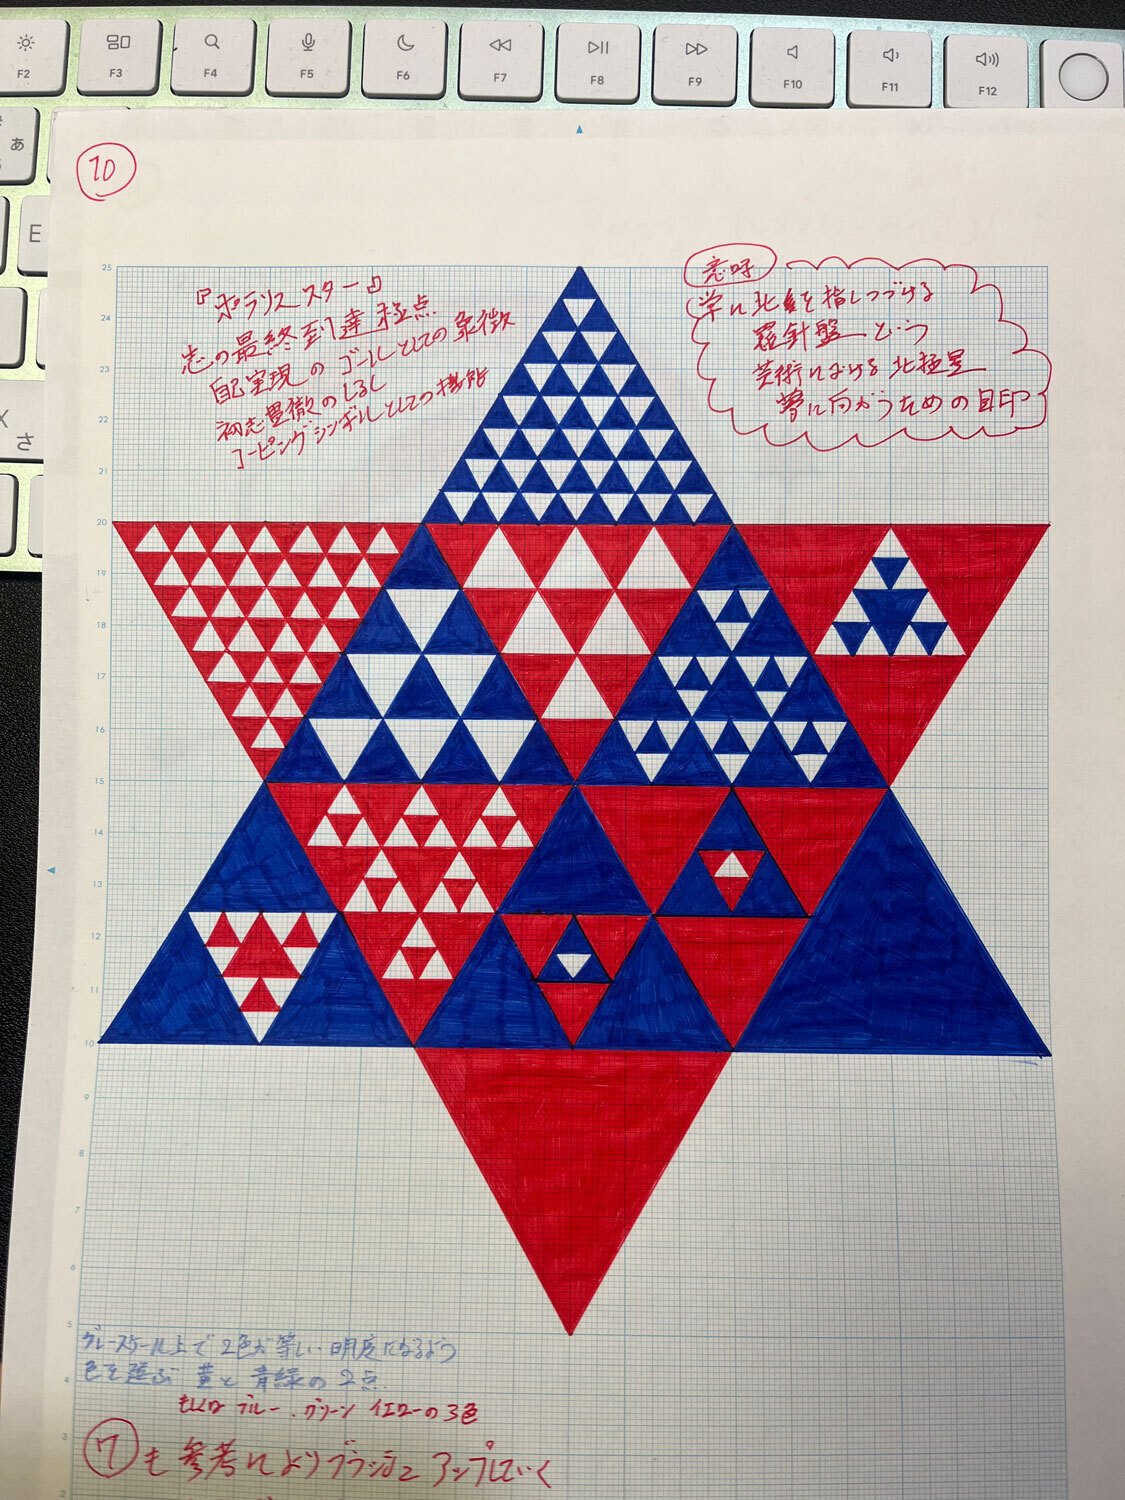 F2
F3
F4
F5
F6
F7
F8
F9
F10
F11
F12
あ
E
X
さ
10
『ポラリス スター』
志の最終到達極点
自己実現のゴールとしての象徴
初志貫徹のしるし
コーピングシンボルとしての機能
意味
常に北を指しつづける
羅針盤という
芸術における北極星
夢に向かうための目印
25
24
23
22
21
20
19
18
17
16
15
14
13
12
11
10
9
8
7
6
5
4
3
2
グレースケール上で2色が等しい明度になるよう
色を選ぶ 黄と青緑の2点
もしくは ブルー、グリーン イエローの3色
⑦も参考によりブラッシュアップしていく